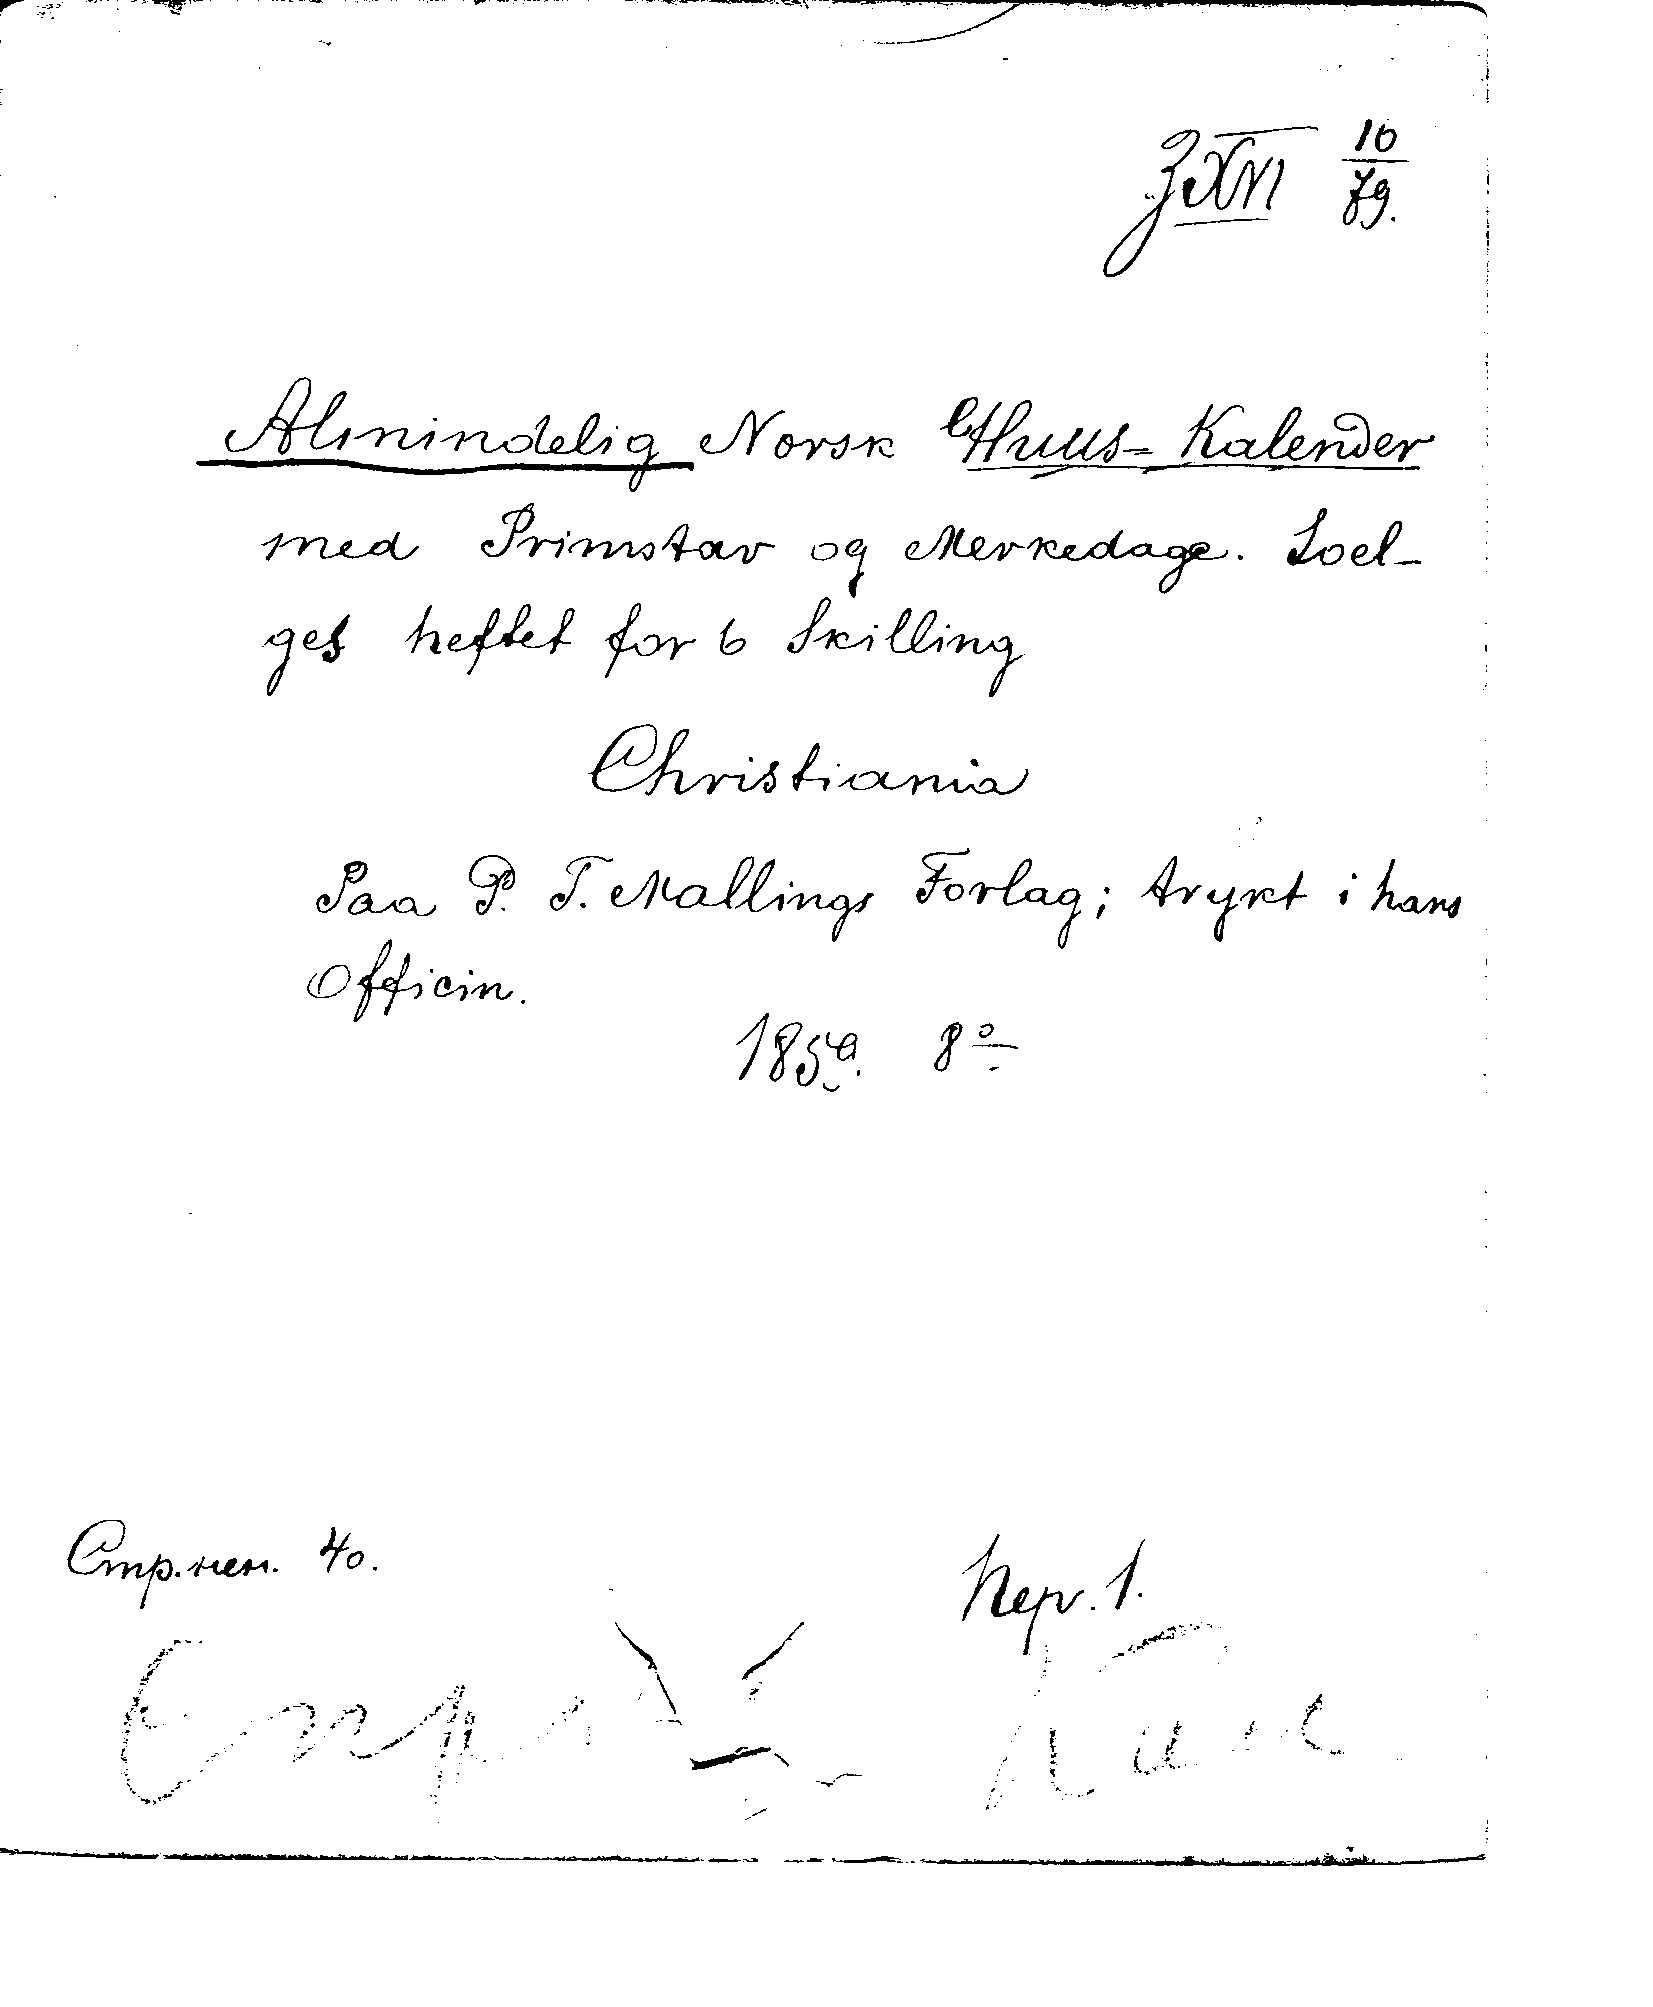 ZXVI 10/79.
Almindelig Norsk Huus-Kalender
med Primstav og Merkedage. Soel-
ges heftet for 6 Skilling
Christiania
Paa P. T. Mallings Forlag; trykt i hans
Officin.
1850. 8º
Стр. нен. 40.
Нер. 1.